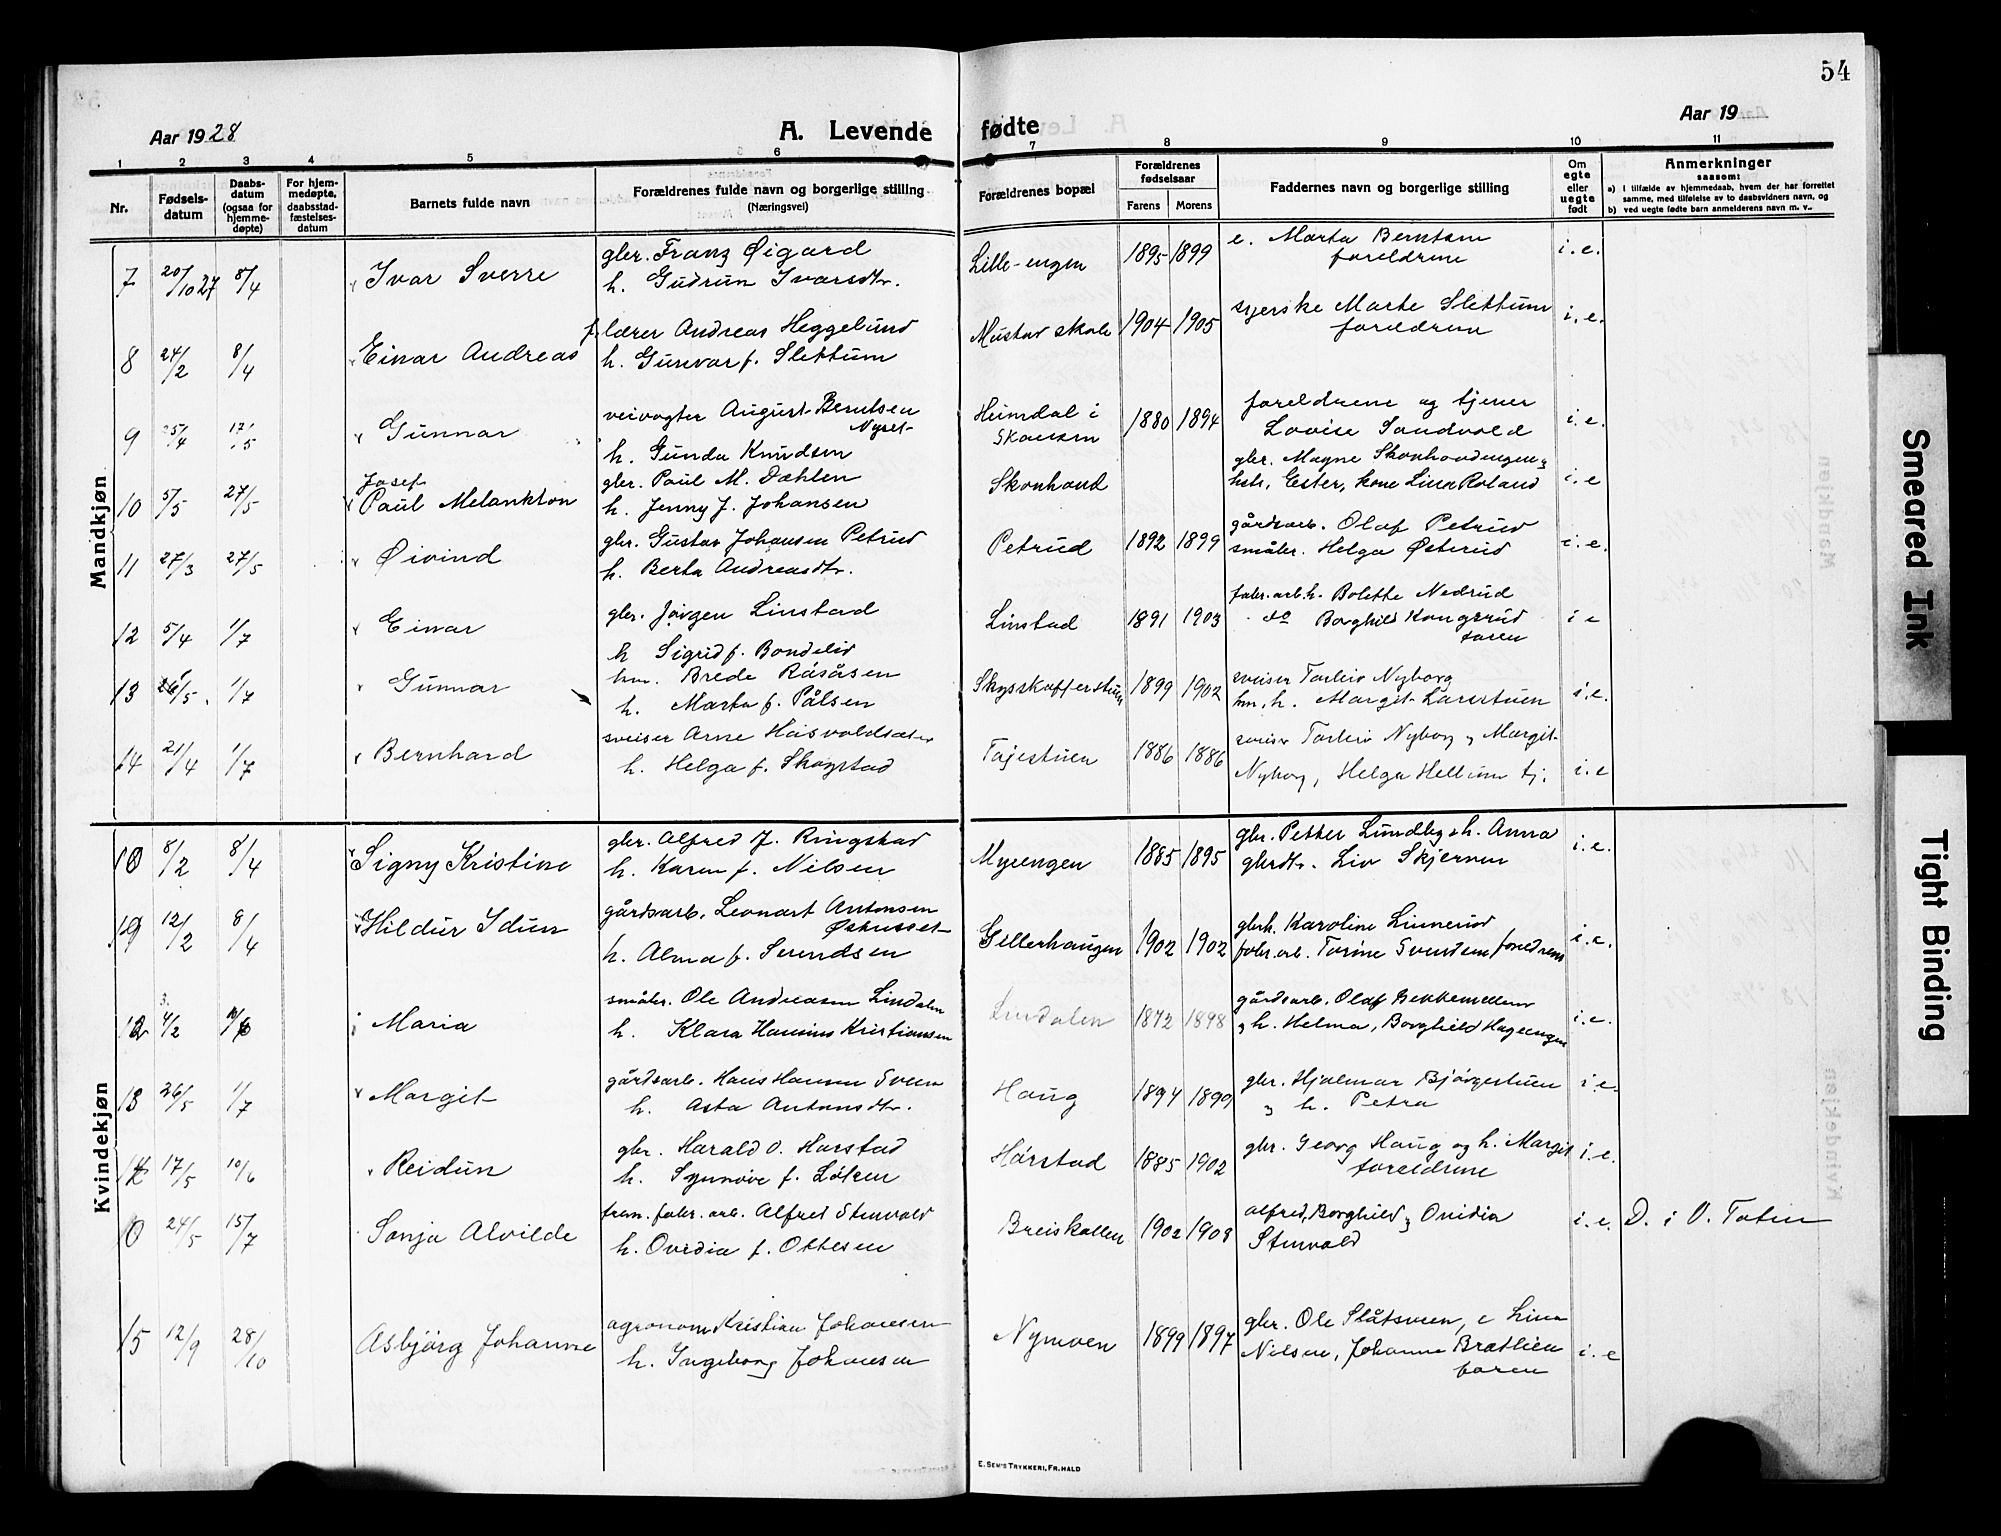 54
Aar 1928
A. Levende fødte
Aar 19
1 2 3 4 5 6 7 8 9 10 11
Nr.
Fødsels-
datum
Daabs-
datum
(ogsaa for
hjemme-
døpte)
For hjem-
medøpte,
daabsstad-
fæstelses-
datum
Barnets fulde navn
Forældrenes fulde navn og borgerlige stilling
(Næringsvei)
Forældrenes bopæl
Forældrenes
fødselsaar
Farens Morens
Faddernes navn og borgerlige stilling
Om
egte
eller
uegte
født
Anmerkninger
saasom:
a) I tilfælde av hjemmedaab, hvem der har forrettet
samme, med tilføielse av to daabsvidners navn, og
b) ved uegte fødte barn anmelderens navn m. v..
Mandkjøn
7 20/10 27 8/4 Ivar Sverre
gbr. Franz Øigard
h. Gudrun Ivarsdtr.
Lille-engen 1895 1899
e. Marta Berntsen
foreldrene
i.e.
8 24/2 8/4 Einar Andreas
f. lærer Andreas Heggelund
h. Gunvor f. Slettum
Mustad skole 1904 1905
syerske Marte Slettum
foreldrene
i.e.
9 25/4 17/5 Gunnar
veivogter August Berntsen
Nyset
h. Gunda Knudsen
Heimdal i
Skousen
1880 1894
foreldrene og tjener
Lovise Sandvold
i.e.
10 5/5 27/5 Josef
Paul Melankton
gbr. Paul M. Dæhlen
h. Jenny J. Johansen
Skonhovd
gbr. Magne Skonhovdengen &
hsb. Ester, kone Lina Roland
i.e
11 27/3 27/5 Øivind
gbr. Gustav Johansen Petrud
h. Berta Andreasdtr.
Petrud 1892 1899
gårdsarb. Olaf Petrud
småbr. Helga Østerud
i.e.
12 5/4 1/7 Einar
gbr. Jørgen Linstad
h Sigrid f. Bondelid
Linstad 1891 1903
fabr.arb.h. Bolette Nedrud
do Borghild Kongsrud
faren
i e
13 26/5. 1/7 Gunnar
hm. Brede Råsåsen
h. Marta f. Pålsen
Skysskafferstuen 1899 1902
sveiser Torleiv Nyborg
hm. h. Margit Larsstuen
i.e.
14 21/4 1/7 Bernhard
sveiser Arne Håsvoldsæter
h. Helga f. Skogstad
Tajestuen 1886 1886
sveiser Torleiv Nyborg & Margit
Nyborg, Helga Hellum tj.
i.e
Kvindekjøn
10 8/2 8/4 Signy Kristine
gbr. Alfred J. Ringstad
h. Karen f. Nilsen
Myrengen 1885 1895
gbr. Petter Lundby & h. Anna
gbrdtr. Liv Skjerven
i.e.
12/2 8/4 Hildur Idun
gårdsarb. Leonart Antonsen
h. Alma f. Svendsen
Gillerhaugen 1902 1902
gbrh. Karoline Linnerud
fabr.arb. Torine Svendsen foreldrene
i.e.
12 4/2 Maria
småbr. Ole Andreasen Lindalen
h. Klara Hansine Kristiansen
Lindalen 1872 1898
gårdsarb. Olaf Bekkemellem
& h. Helma, Borghild Hageengen
i.e.
13 26/5 1/7 Margit
gårdsarb. Hans Hansen Sveen
h. Asta Antonsdtr.
Haug 1894 1899
gbr. Hjalmar Bjørgestuen
& h. Petra
i e.
14 17/5 10/6 Reidun
gbr. Harald O. Harstad
h. Synnøve f. Løken
Hårstad 1885 1902
gbr. Georg Haug og h. Margit
foreldrene
i.e.
10 24/5 15/7 Sonja Alvilde
frem. fabr. arb. Alfred Stenvold
h. Ovidia f. Ottesen
Breiskallen 1902 1908
Alfred, Borghild & Ovidia
Stenvold
i.e.
D. i V. Toten
15 12/9 28/10 Asbjørg Johanne
agronom Kristian Johansen
h. Ingeborg Johansen
Nymoen 1899 1897
gbr. Ole Slåtsveen, e Lina
Nilsen, Johanne Brætlien
faren
i.e
E. SEM'S TRYKKERI, FR.HALD
Smeared Ink
Tight Binding